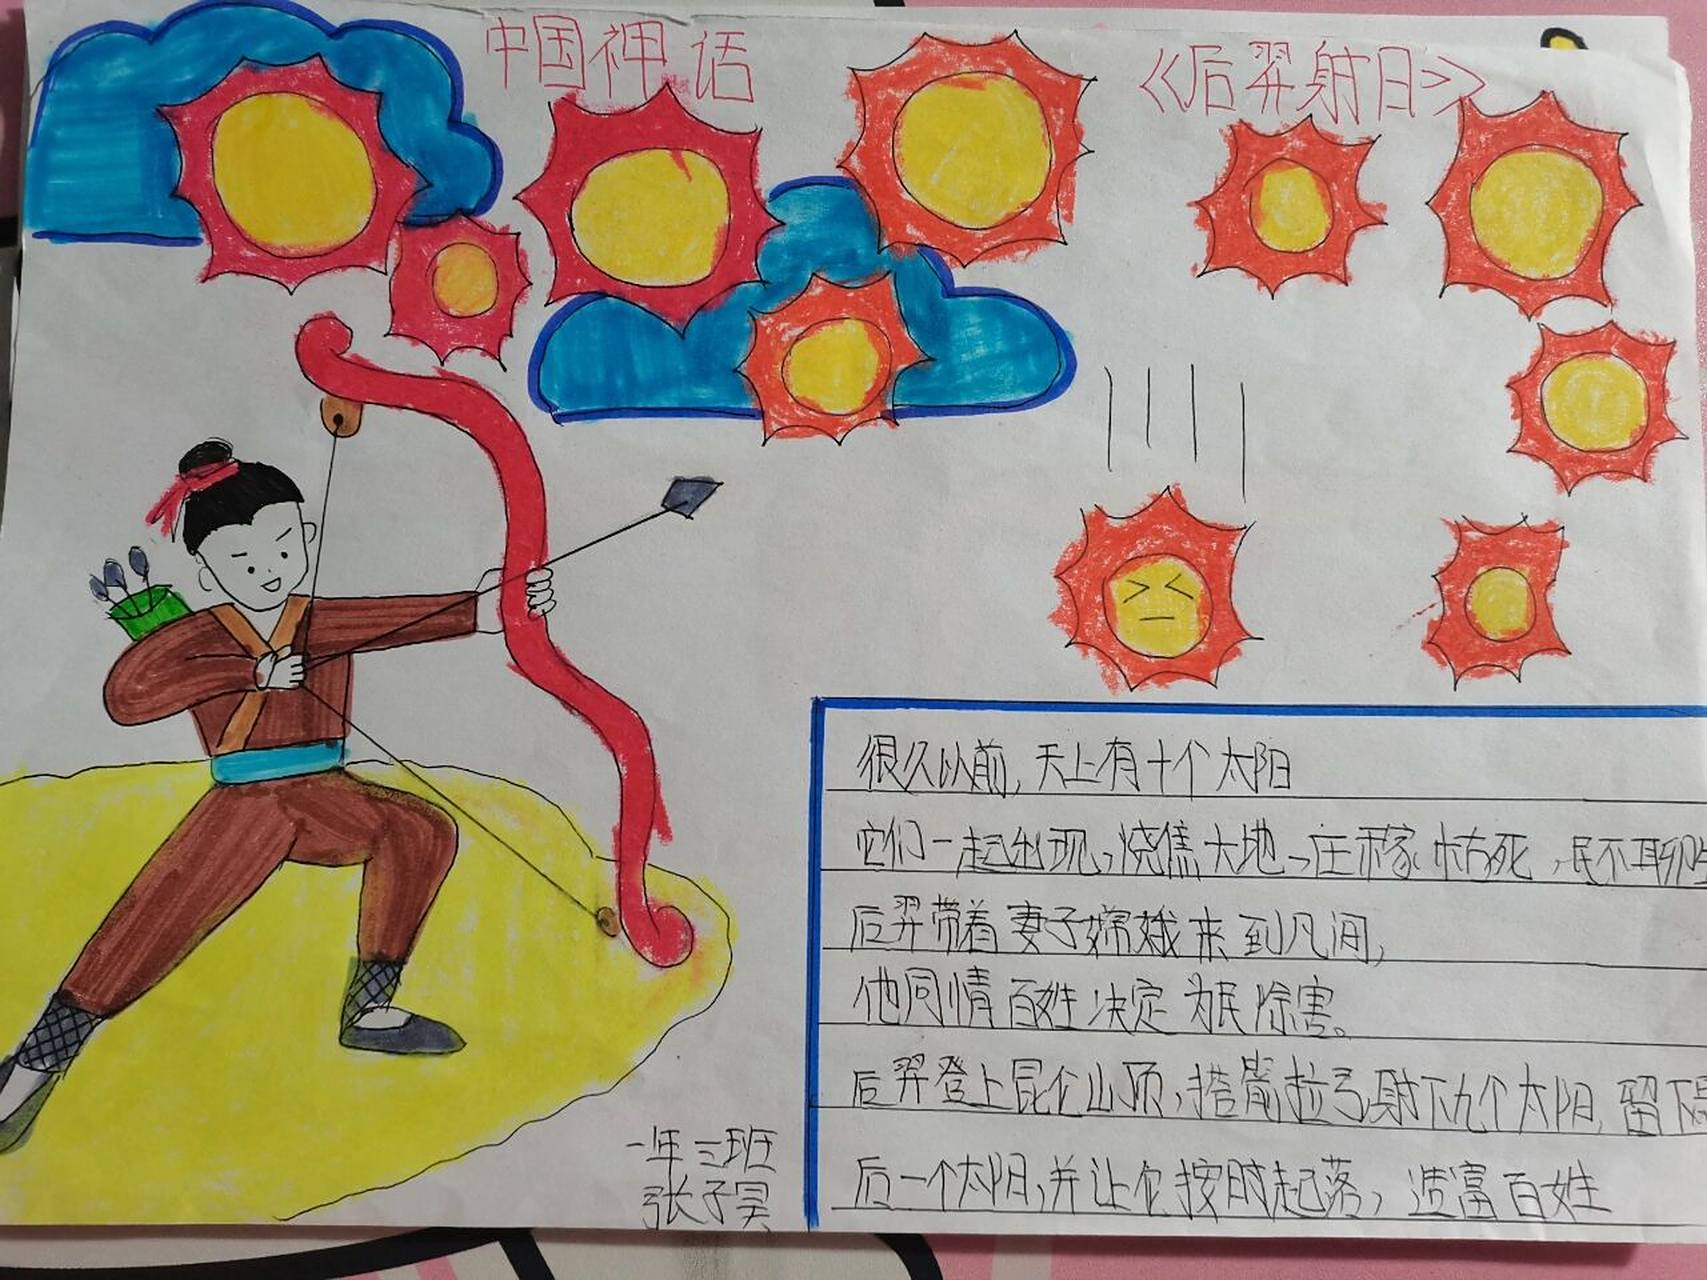 中国神话 《后羿射日》
很久以前，天上有十个太阳
它们一起出现，烧焦大地、庄稼枯死，民不聊生
后羿带着妻子嫦娥来到凡间，
他同情百姓决定为民除害。
后羿登上昆仑山顶，搭箭拉弓射下九个太阳，留下最
后一个太阳，并让它按时起落，造富百姓
一年三班
张子昊